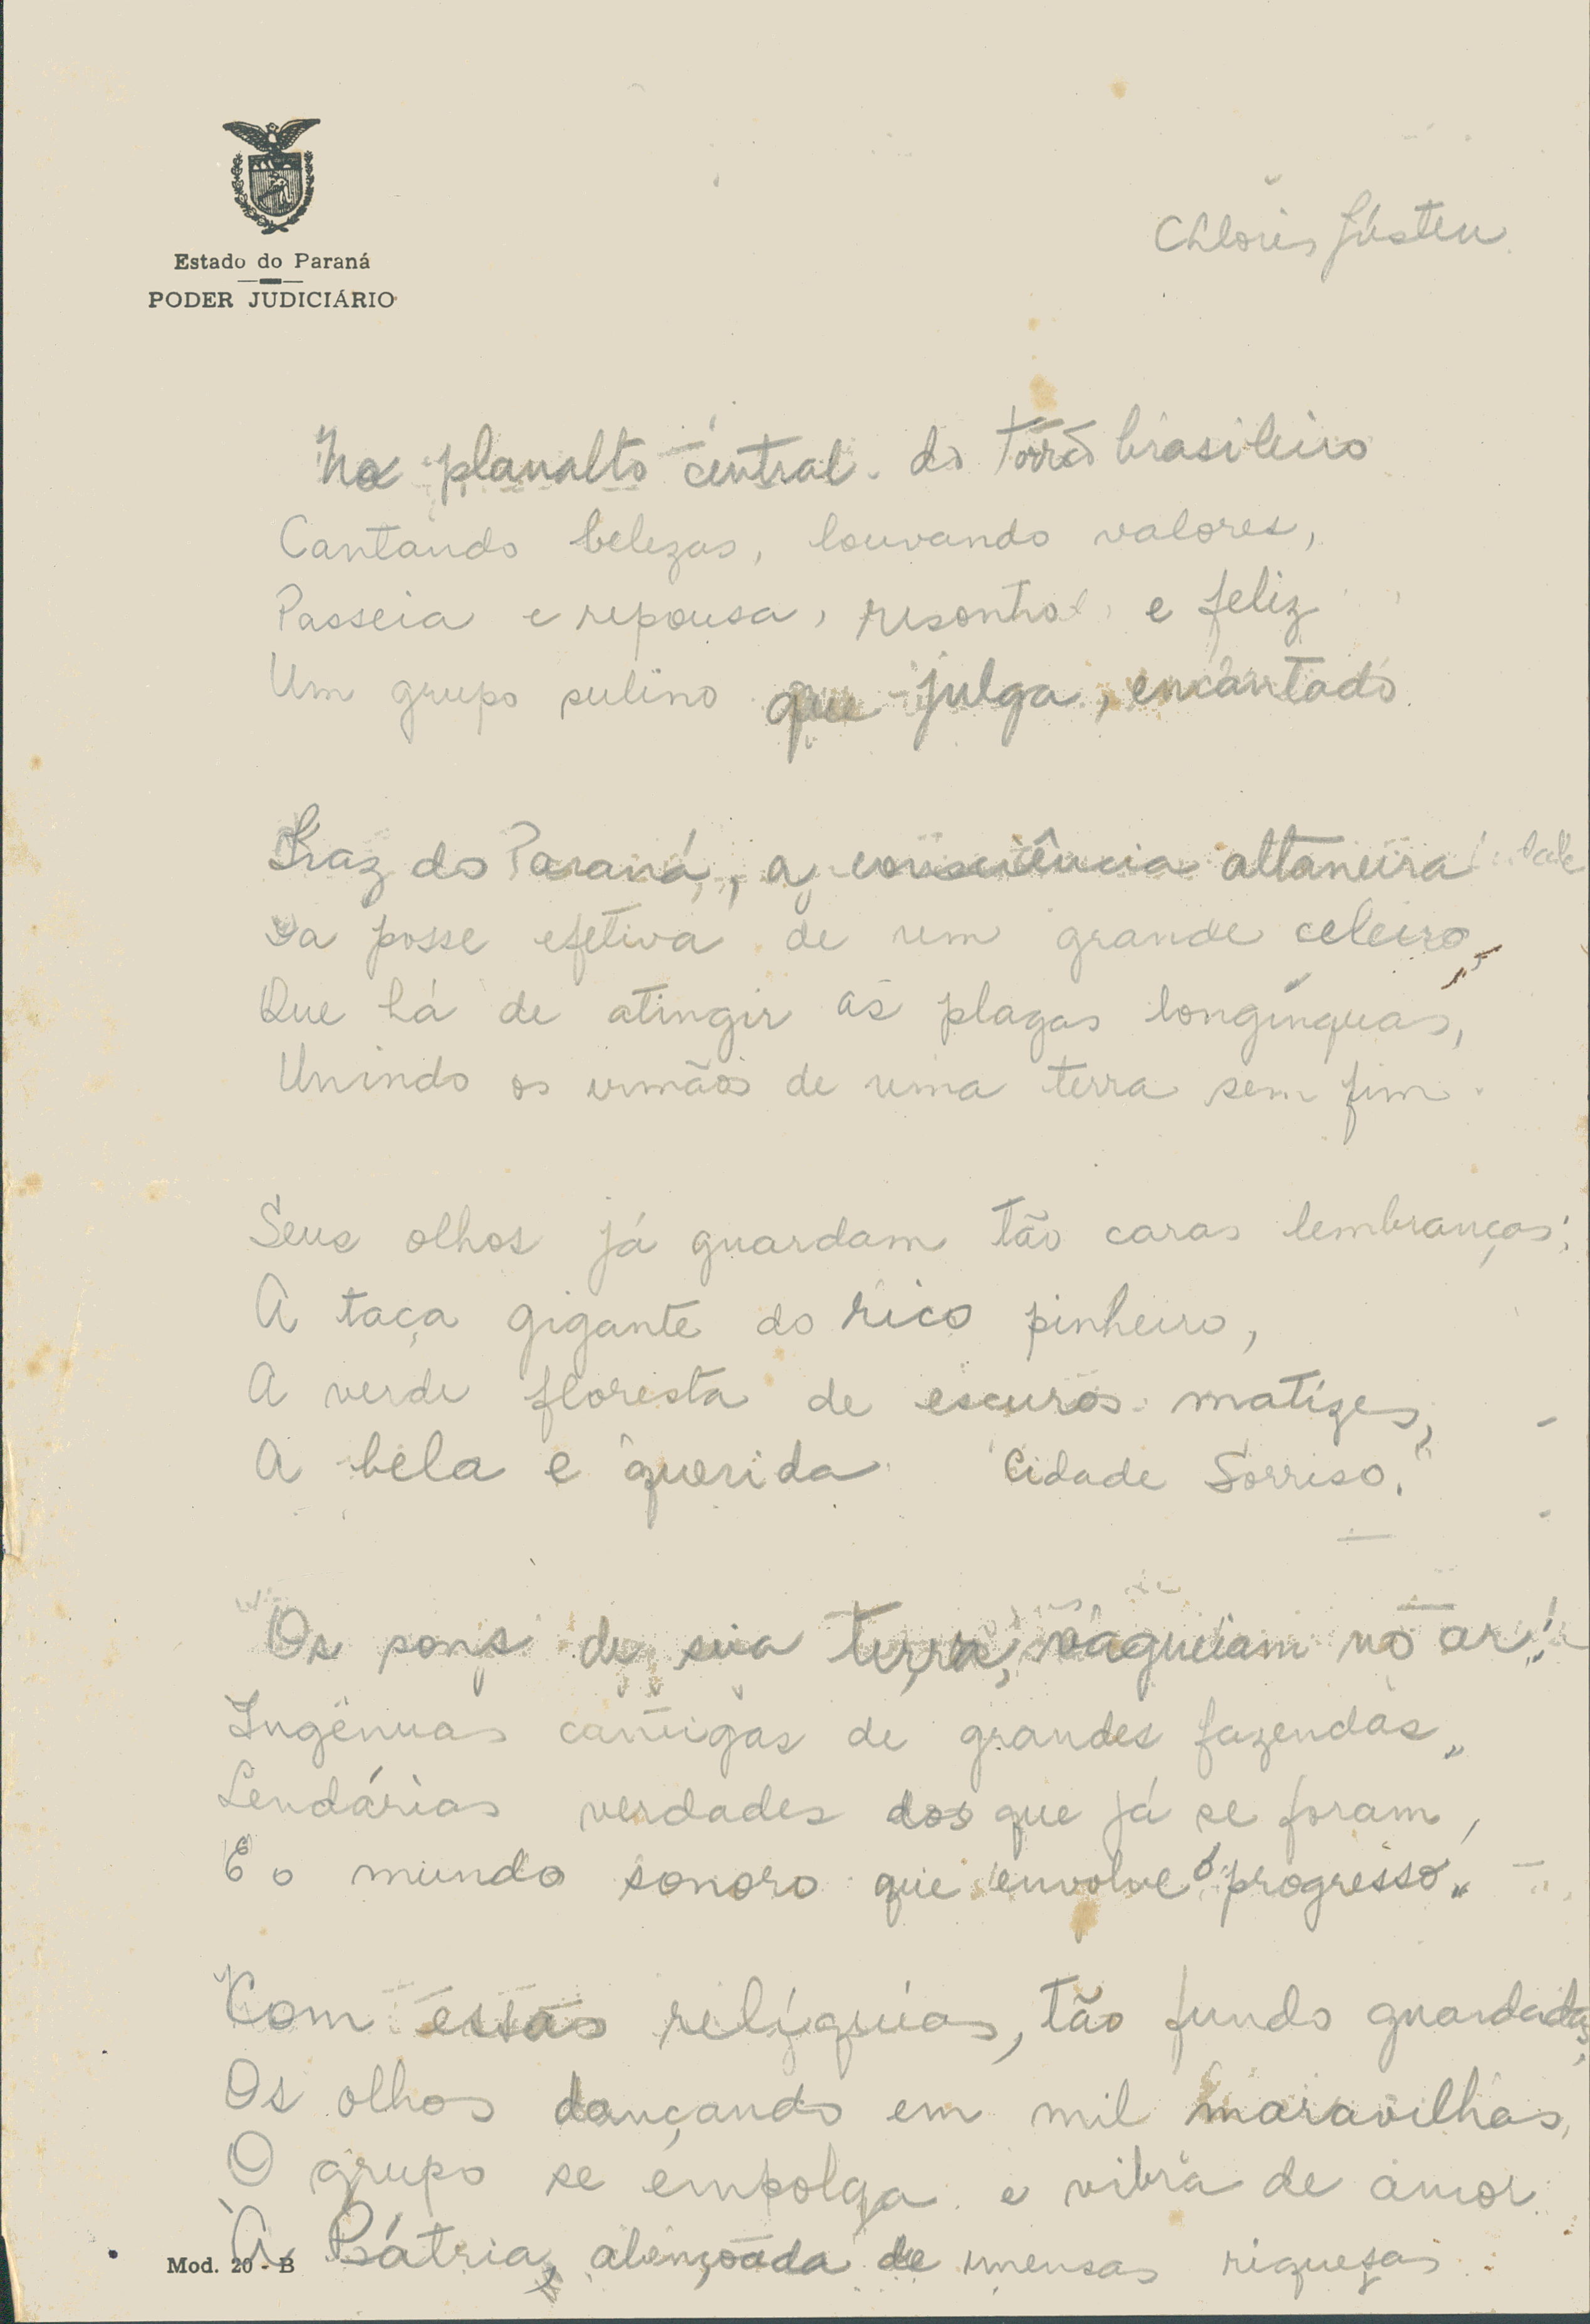 Estado do Paraná
PODER JUDICIÁRIO
Chloris Justen
No planalto central do torrão brasileiro
Cantando belezas, louvando valores,
Passeia e repousa, risonho e feliz
Um grupo sulino que julga, encantado
Traz do Paraná, a consciência altaneira
Da posse efetiva de um grande celeiro
Que há de atingir as plagas longínquas,
Unindo os irmãos de uma terra sem fim.
Seus olhos já guardam tão caras lembranças:
A taça gigante do rico pinheiro,
A verde floresta de escuros matizes,
A bela e querida "Cidade Sorriso."
Os sons de sua terra, vagueiam no ar!
Ingênuas cantigas de grandes fazendas,
Lendárias verdades dos que já se foram,
E o mundo sonoro que envolve o progresso..
Com essas relíquias, tão fundo guardadas,
Os olhos dançando em mil maravilhas,
O grupo se empolga e vibra de amor
À Pátria, abençoada de imensas riquezas
Mod. 20 - B